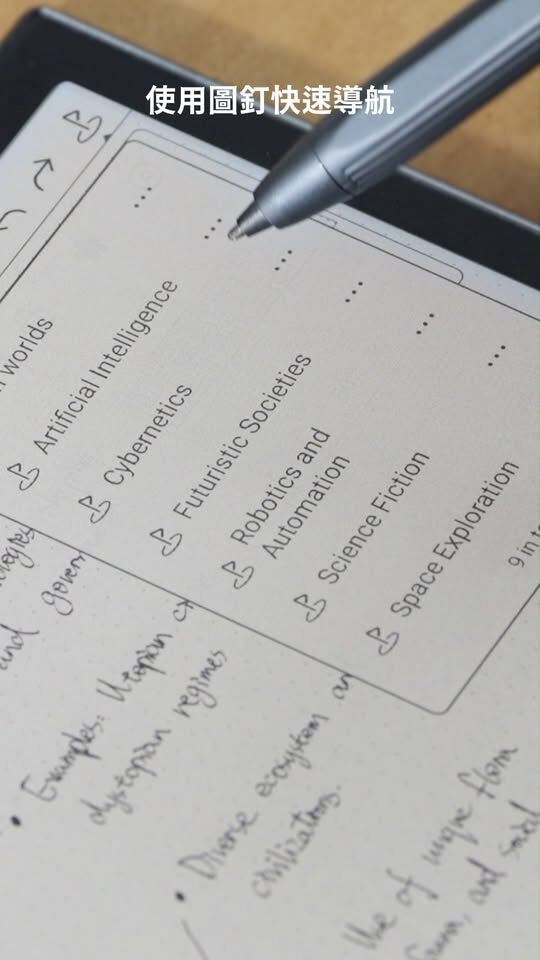 使用圖釘快速導航
worlds
Artificial Intelligence
Cybernetics
Futuristic Societies
Robotics and
Automation
Science Fiction
Space Exploration
9 in
and govern
Examples: Utopian
dystopian regimes
Diverse ecosystem
civilizations.
Use of unique
and